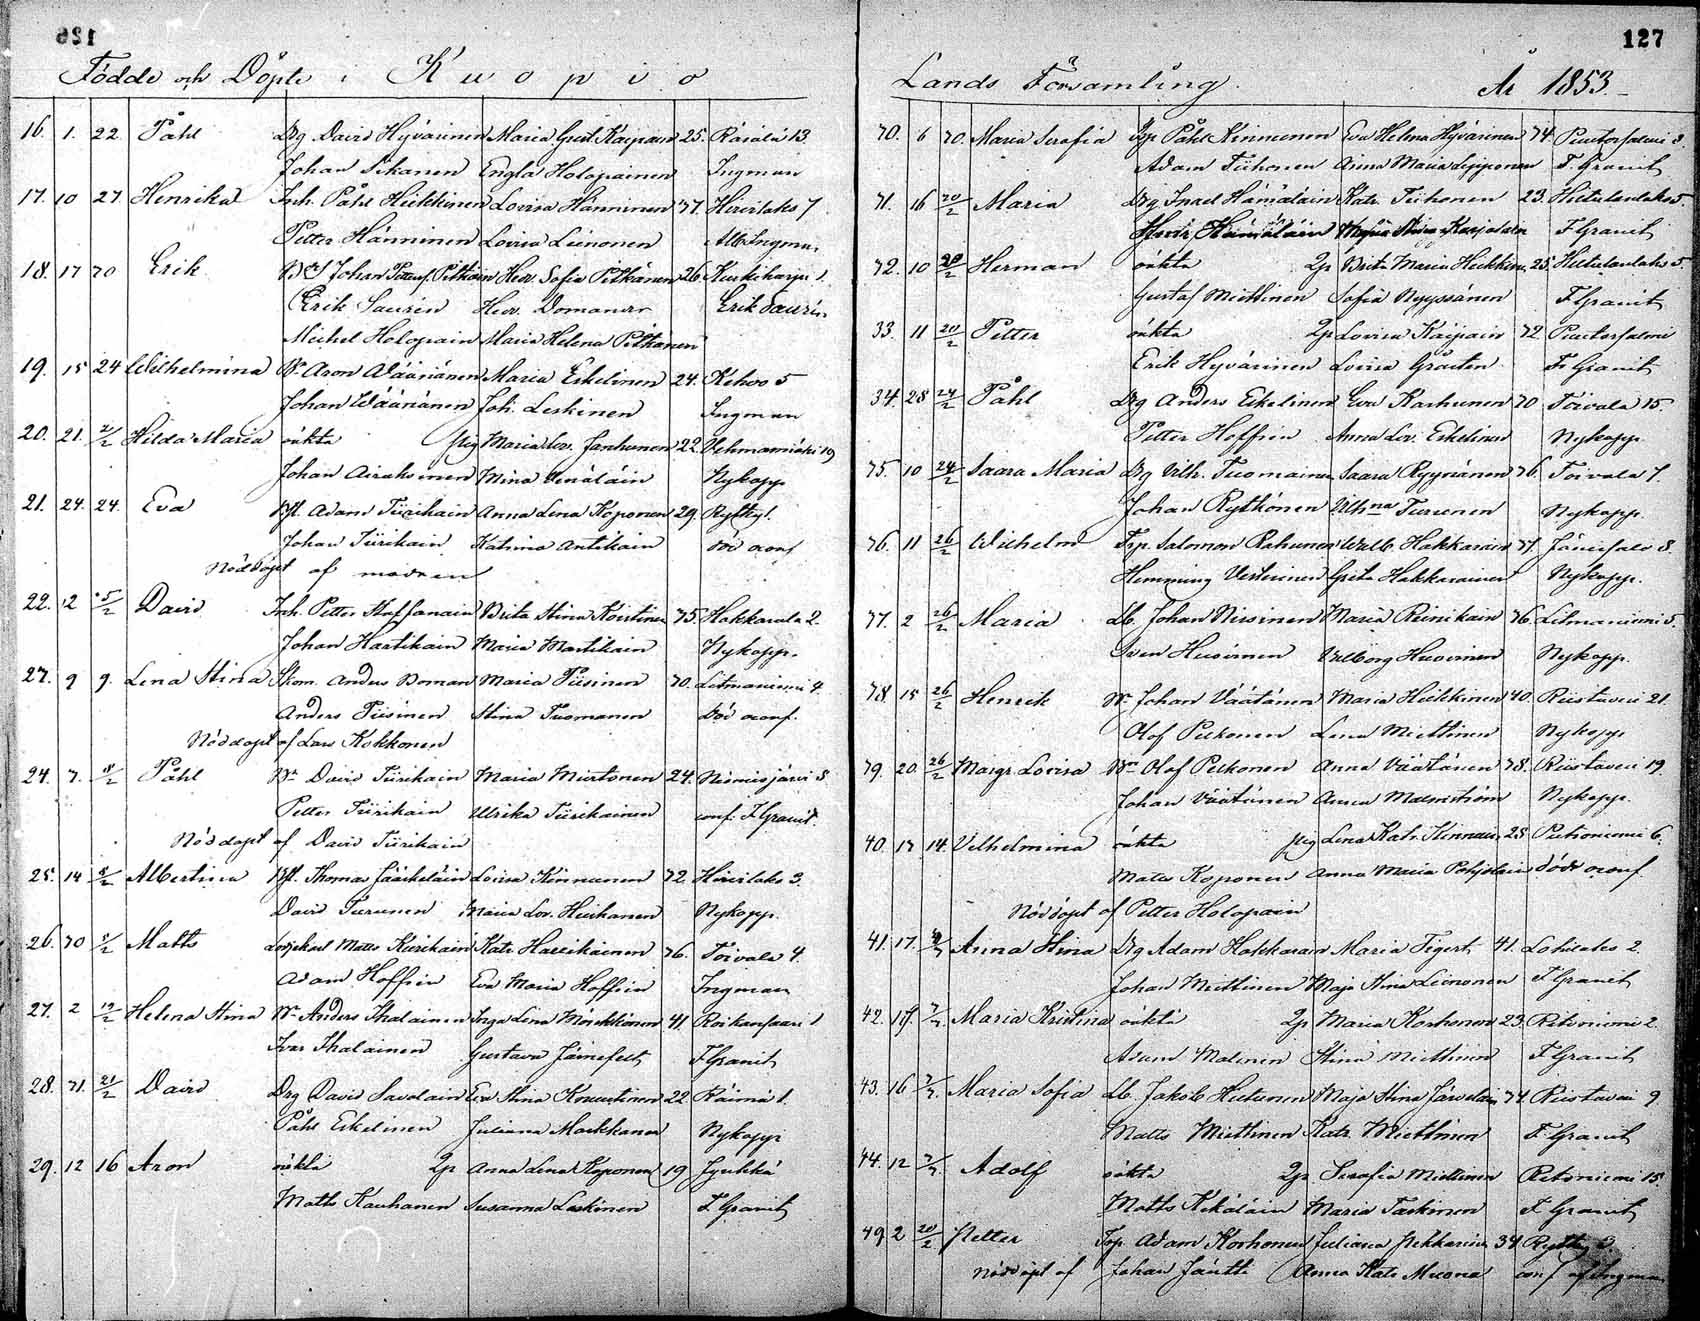 126
Födde och Döpte i Kuopio
16. 1. 22. Påhl Drg David Hyvärinen Maria Gust. Kaipain 25. Räsälä 13.
Johan Sikanen Engla Holopainen Ingman
17. 10 27. Henrika Inh. Påhl Heikkinen Lovisa Hänninen 31. Hirvilaks 7
Petter Hänninen Lovisa Leinonen Alb. Ingman
18. 17 30 Erik Johan Pitkänen Hedv. Sofia Pitkänen 26. Kurkiharju 1.
Erik Saurén Hedv. Domander Erik Saurén
Michel Holopain Maria Helena Pitkänen
19. 15 24 Wilhelmina Bn Aron Väänänen Maria Eskelinen 24. Kehvo 5
Johan Väänänen Joh. Leskinen Ingman
20. 21. 2/2 Hilda Maria oäkta pig Maria Lov. Janhunen 22. Vehmasmäki 19
Johan Airaksinen Mina Nykopp
21. 24. 24. Eva Adam Tiirikain Anna Lena Koponen 29. Rytky 1.
Johan Tiirikain Katrina Antikain död oconf
Nöddöpt af modren
22. 2 5/2 David Inh. Petter Staffanain Brita Stina Koistinen 35. Hakkarala 2.
Johan Hartikain Maria Martikain Nykopp.
23. 9 9. Lena Stina Skom. Anders Boman Maria Tiisinen 30. Litmaniemi 4.
Anders Tiisinen Stina Tuomanen död oconf.
Nöddöpt af Lars Kokkonen
24. 7. 8/2 Påhl Bn David Tiirikain Maria Miettinen 24. Nimisjärvi 8
Petter Tiirikain Ulrika Tiirikainen conf. F. Granit.
Nöddöpt af David Tiirikain
25. 14 8/2 Albertina Thomas Jääskeläin Lovisa Kinnunen 32. Hirvilaks 3.
David Turunen Maria Lov. Heiskanen Nykopp.
26. 30 8/2 Matts Matts Kiirikain Katr. Hartikainen 36. Toivala 4.
Adam Hoffrén Eva Maria Hoffrén Ingman
27. 2 19/2 Helena Stina Bn Anders Ihalainen Inga Lena Mönkkönen 41. Roikansaari 1
Ivar Ihalainen Gustava Järnefelt F. Granit
28. 31. 21/2 David Drg David Savolain Eva Stina Konuutinen 22. Räimä 1.
Påhl Eskelinen Juliana Markkanen Nykopp
29. 12 16 Aron oäkta Qp Anna Lena Koponen 19 Jynkkä
Matts Kauhanen Susanna Laskinen F. Granit
127
Lands Församling. År 1853
30. 6 30. Maria Serafia Trp Påhl Kinnunen Eva Helena Hyvärinen 34. Puutosalmi 3.
Adam Tiihonen Anna Maria Lyyponen F. Granit
31. 16 20/2 Maria Drg Israel Hämäläin Katr. Tiihonen 23. Hietulanlaks 5.
F Granit
32. 10 20/2 Herman oäkta Qp Brita Maria Heikkinen 25. Hietulanlaks 5.
Gustaf Miettinen Sofia Nyyssönen F Granit
33. 11 20/2 Petter oäkta Qp Lovisa Kaipain 32 Puutosalmi
Erik Hyvärinen Lovisa F. Granit
34. 28 24/2 Påhl Drg Anders Eskelinen Eva Karhunen 30 Toivala 15.
Petter Hoffrén Anna Lov. Eskelinen Nykopp.
35. 10 24/2 Saara Maria Drg Vilh. Tuomainen Saara Ryynänen 36. Toivala 7.
Johan Rytkönen Vilhna Turunen Nykopp.
36. 11 26/2 Wilhelm Trp. Salomon Rahunen Walb. Hakkarain 37. Jänissalo 8.
Hemming Vesterinen Greta Hakkarainen Nykopp.
37. 2 26/2 Maria Lb. Johan Nissinen Maria Reinikain 36. Litmaniemi 5.
Sven Huovinen Valborg Huovinen Nykopp.
38. 15 26/2 Henrik Bn Johan Väätänen Maria Heikkinen 40. Riistavesi 21.
Olof Pekonen Lena Miettinen Nykopp
39. 20. 26/2 Margr Lovisa Bn Olof Pekonen Anna Väätänen 38. Riistavesi 19.
Johan Väätänen Anna Malmström Nykopp.
40. 13 14. Vilhelmina oäkta pig Lena Katr. Kinnunen 28 Putroniemi 6.
Matts Koponen Anna Maria Pohjolain död oconf
Nöddöpt af Petter Holopain
41. 17. Anna Stina Drg Adam Hakkarain Maria Tegert 41. Lohilaks 2.
Johan Miettinen Maja Stina Leinonen F Granit
42. 19. 7/3 Maria Kristina oäkta Qp Maria Korhonen 23. Ritoniemi 2.
Adam Malinen Stina Miettinen F Granit
43. 16 7/3 Maria Sofia Lb. Jakob Hietanen Maja Stina Järvelain 34. Riistavesi 9
Matts Miettinen Katr. Miettinen F Granit
44. 12 7/3 Adolf oäkta Qp Serafia Miettinen Ritoniemi 15.
Matts Kekäläin Maria Taskinen F Granit
49 2 20/2 Petter Trp. Adam Korhonen Juliana Pekkarin 34 Rytky 3.
Nöddöpt af Johan Jäntti Anna Kats Muona conf af Ingman